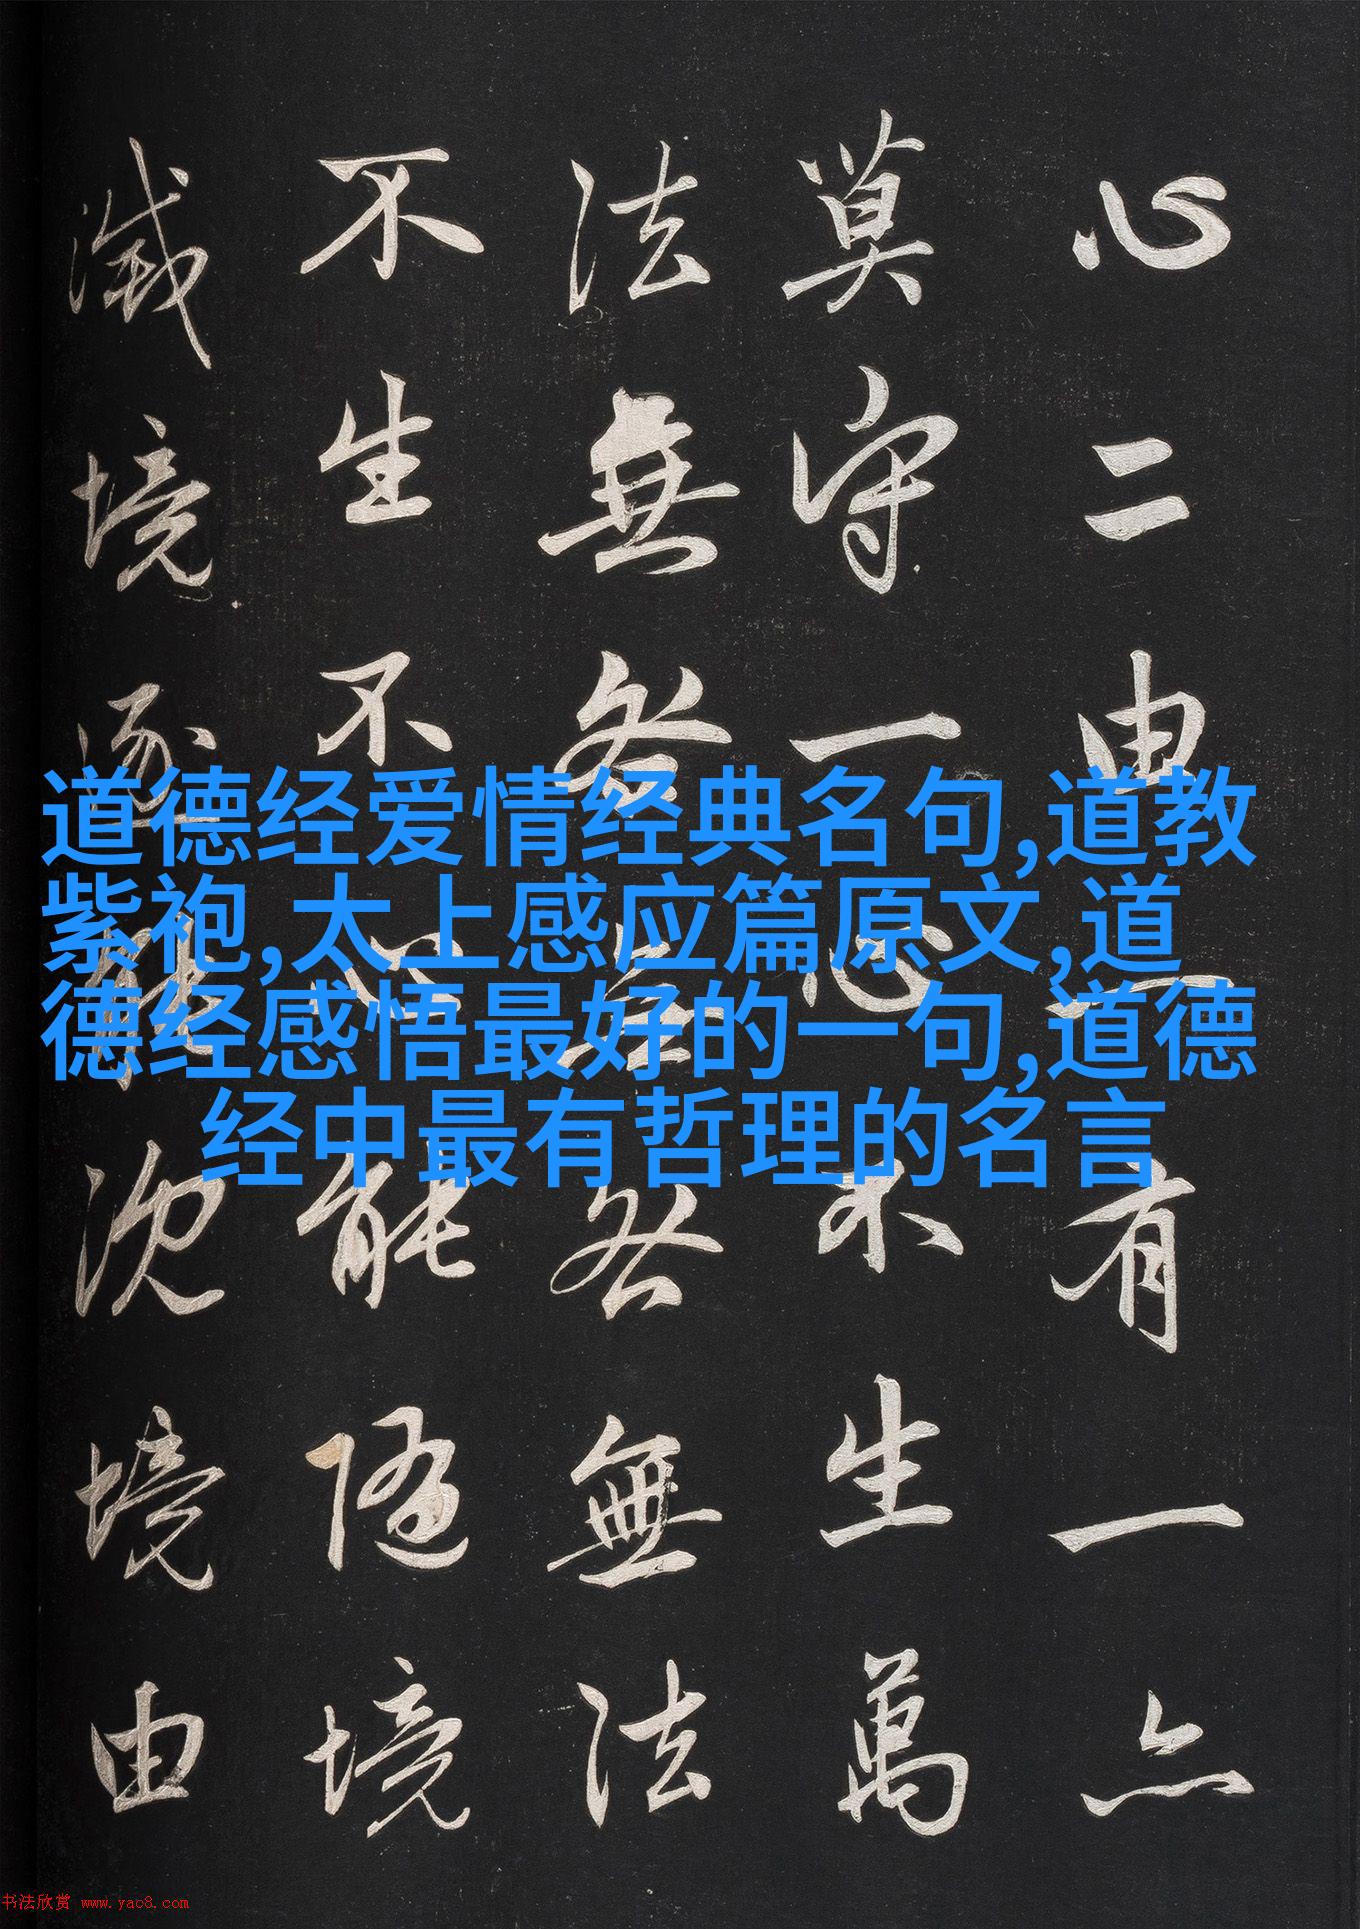 心二由一有一亦
莫守一心不生萬
法無咎無咎無法
不生不心能隨境
滅境逐能沉境由
道德经爱情经典名句,道教
紫袍,太上感应篇原文,道
德经感悟最好的一句,道德
经中最有哲理的名言
书法欣赏 www.yac8.com